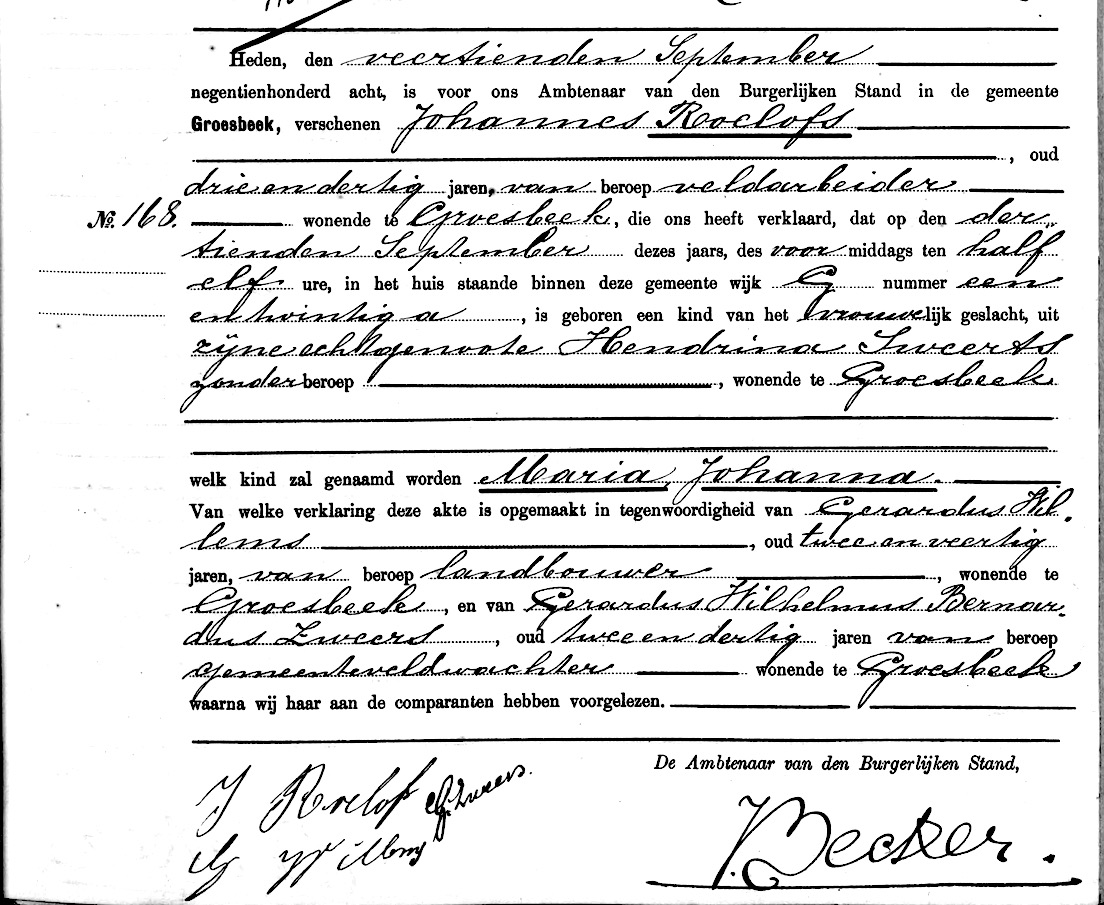 Heden, den veertienden September
negentienhonderd acht, is voor ons Ambtenaar van den Burgerlijken Stand in de gemeente
Groesbeek, verschenen Johannes Roelofs
, oud
drie en dertig jaren, van beroep veldarbeider
No. 168. wonende te Groesbeek, die ons heeft verklaard, dat op den der„
tienden September dezes jaars, des voormiddags ten half
elf ure, in het huis staande binnen deze gemeente wijk G nummer een
en twintig a, is geboren een kind van het vrouwelijk geslacht, uit
zijne echtgenoote Hendrina Sweerts
zonder beroep, wonende te Groesbeek
welk kind zal genaamd worden Maria, Johanna.
Van welke verklaring deze akte is opgemaakt in tegenwoordigheid van Gerardus Wil„
lems, oud twee en veertig
jaren, van beroep landbouwer, wonende te
Groesbeek, en van Gerardus Wilhelmus Bernar„
dus Zweers, oud twee en dertig jaren van beroep
gemeenteveldwachter wonende te Groesbeek
waarna wij haar aan de comparanten hebben voorgelezen.
De Ambtenaar van den Burgerlijken Stand,
J Roelofs G. Zweers.
G Willems
J. Becker.